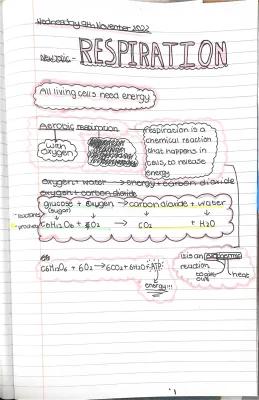 Wednesday 9th November 2022
RESPIRATION
All living cells need energy
AEROBIC respiration
with oxygen
respiration is a
chemical reaction
that happens in
cells, to release
energy
oxygen + water → energy + carbon dioxide
oxygen + carbon dioxide
glucose + oxygen → carbon dioxide + water
(sugar)
C6H12O6 + O2 → CO2 + H2O
C6H12O6 + 6O2 → 6CO2 + 6H2O + ATP
energy!!!
is is an exothermic
reaction
heat